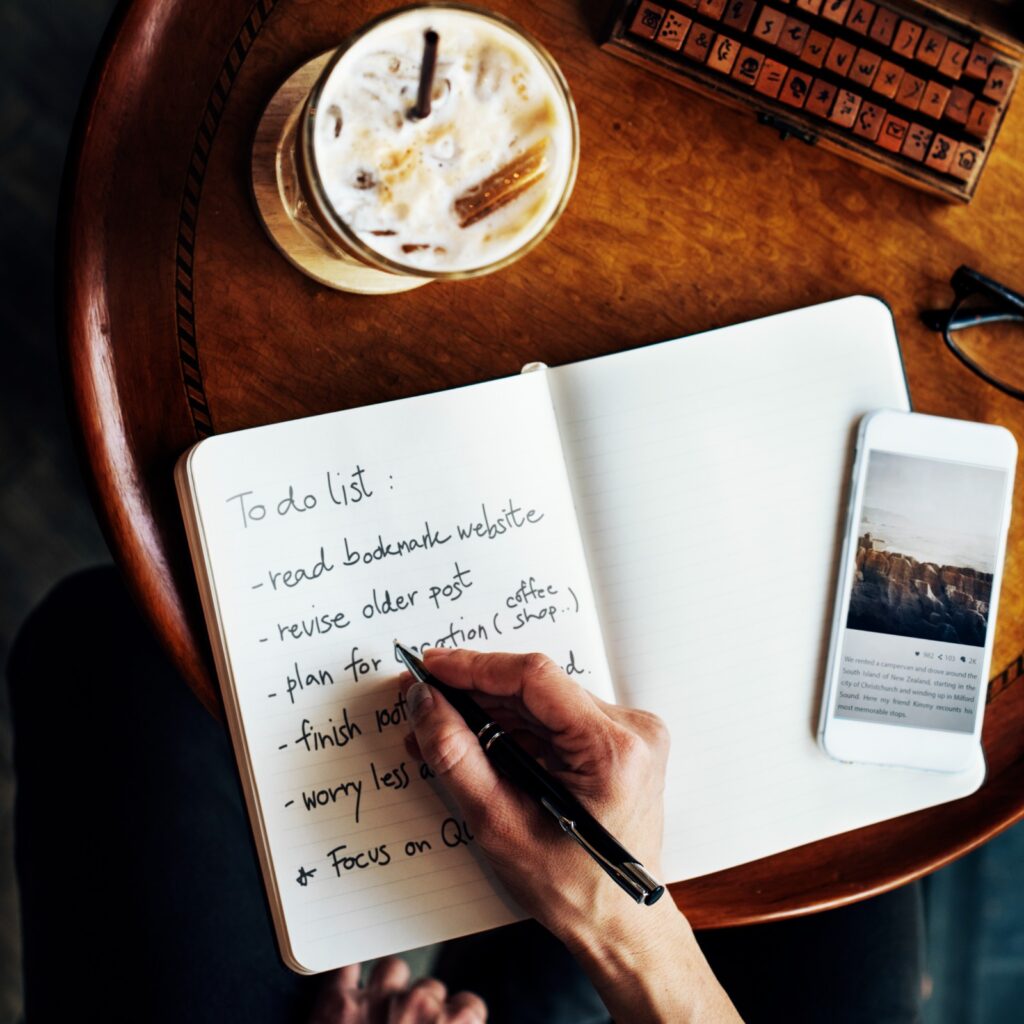 To do list :
- read bookmark website
- revise older post
- plan for (coffee shop..)
- finish
- worry less
* Focus on
982 103 2K
We rented a campervan and drove around the
South Island of New Zealand, starting in the
city of Christchurch and winding up in Milford
Sound. Here my friend Kimmy recounts his
most memorable stops.